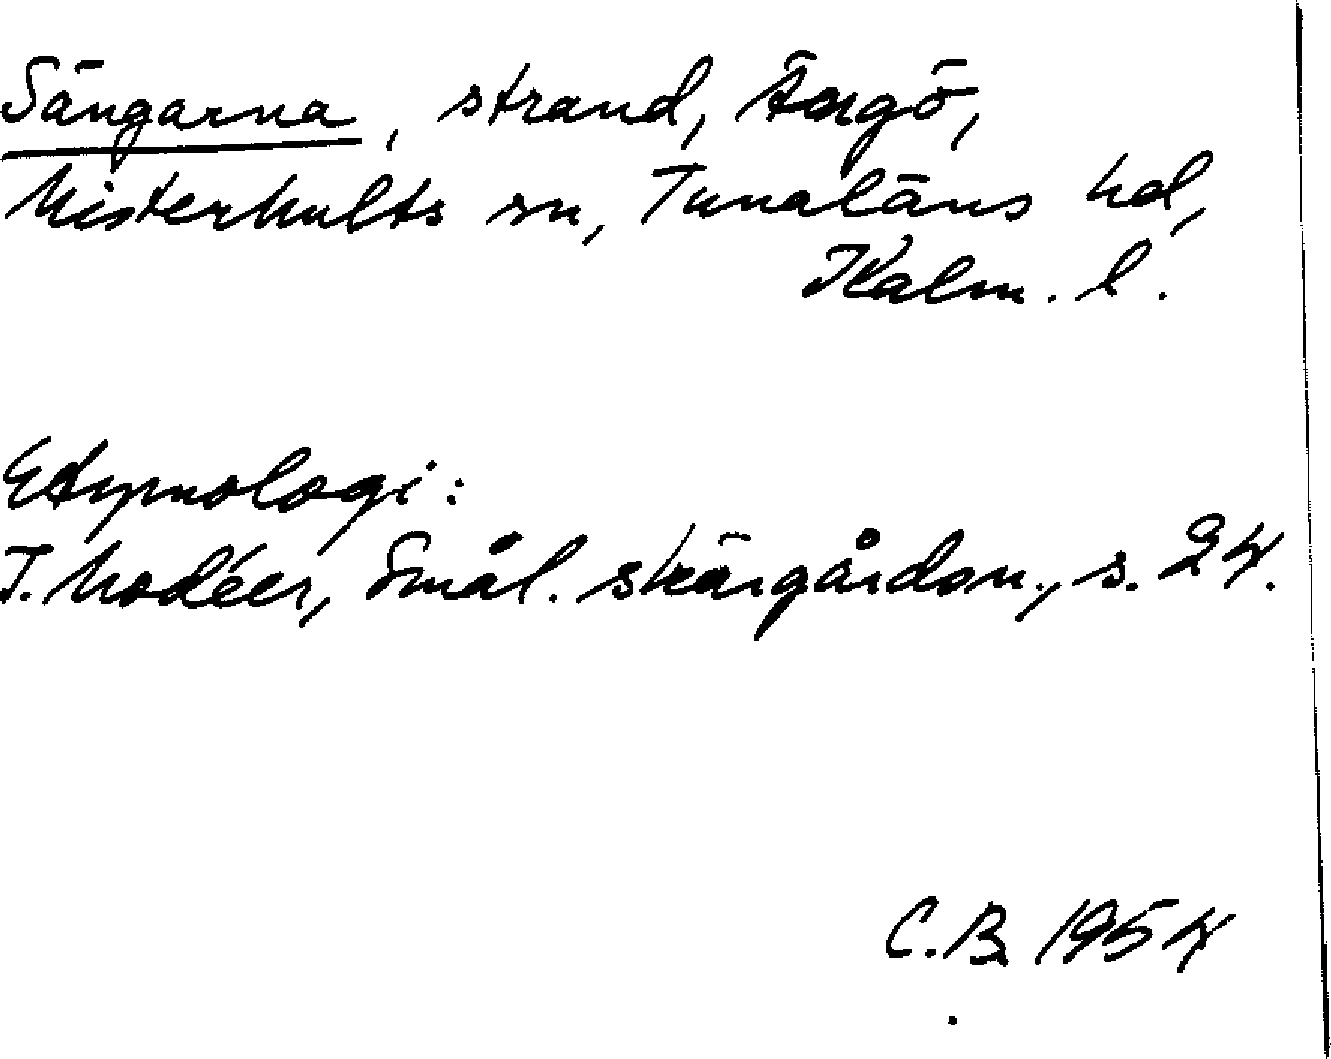 Sängarna, strand, Ängö,
Misterhults sn, Tunaläns hd,
Kalm. l.
Etymologi:
I. Modéer, Smål. skärgårdsn., s. 24.
C.B. 1954